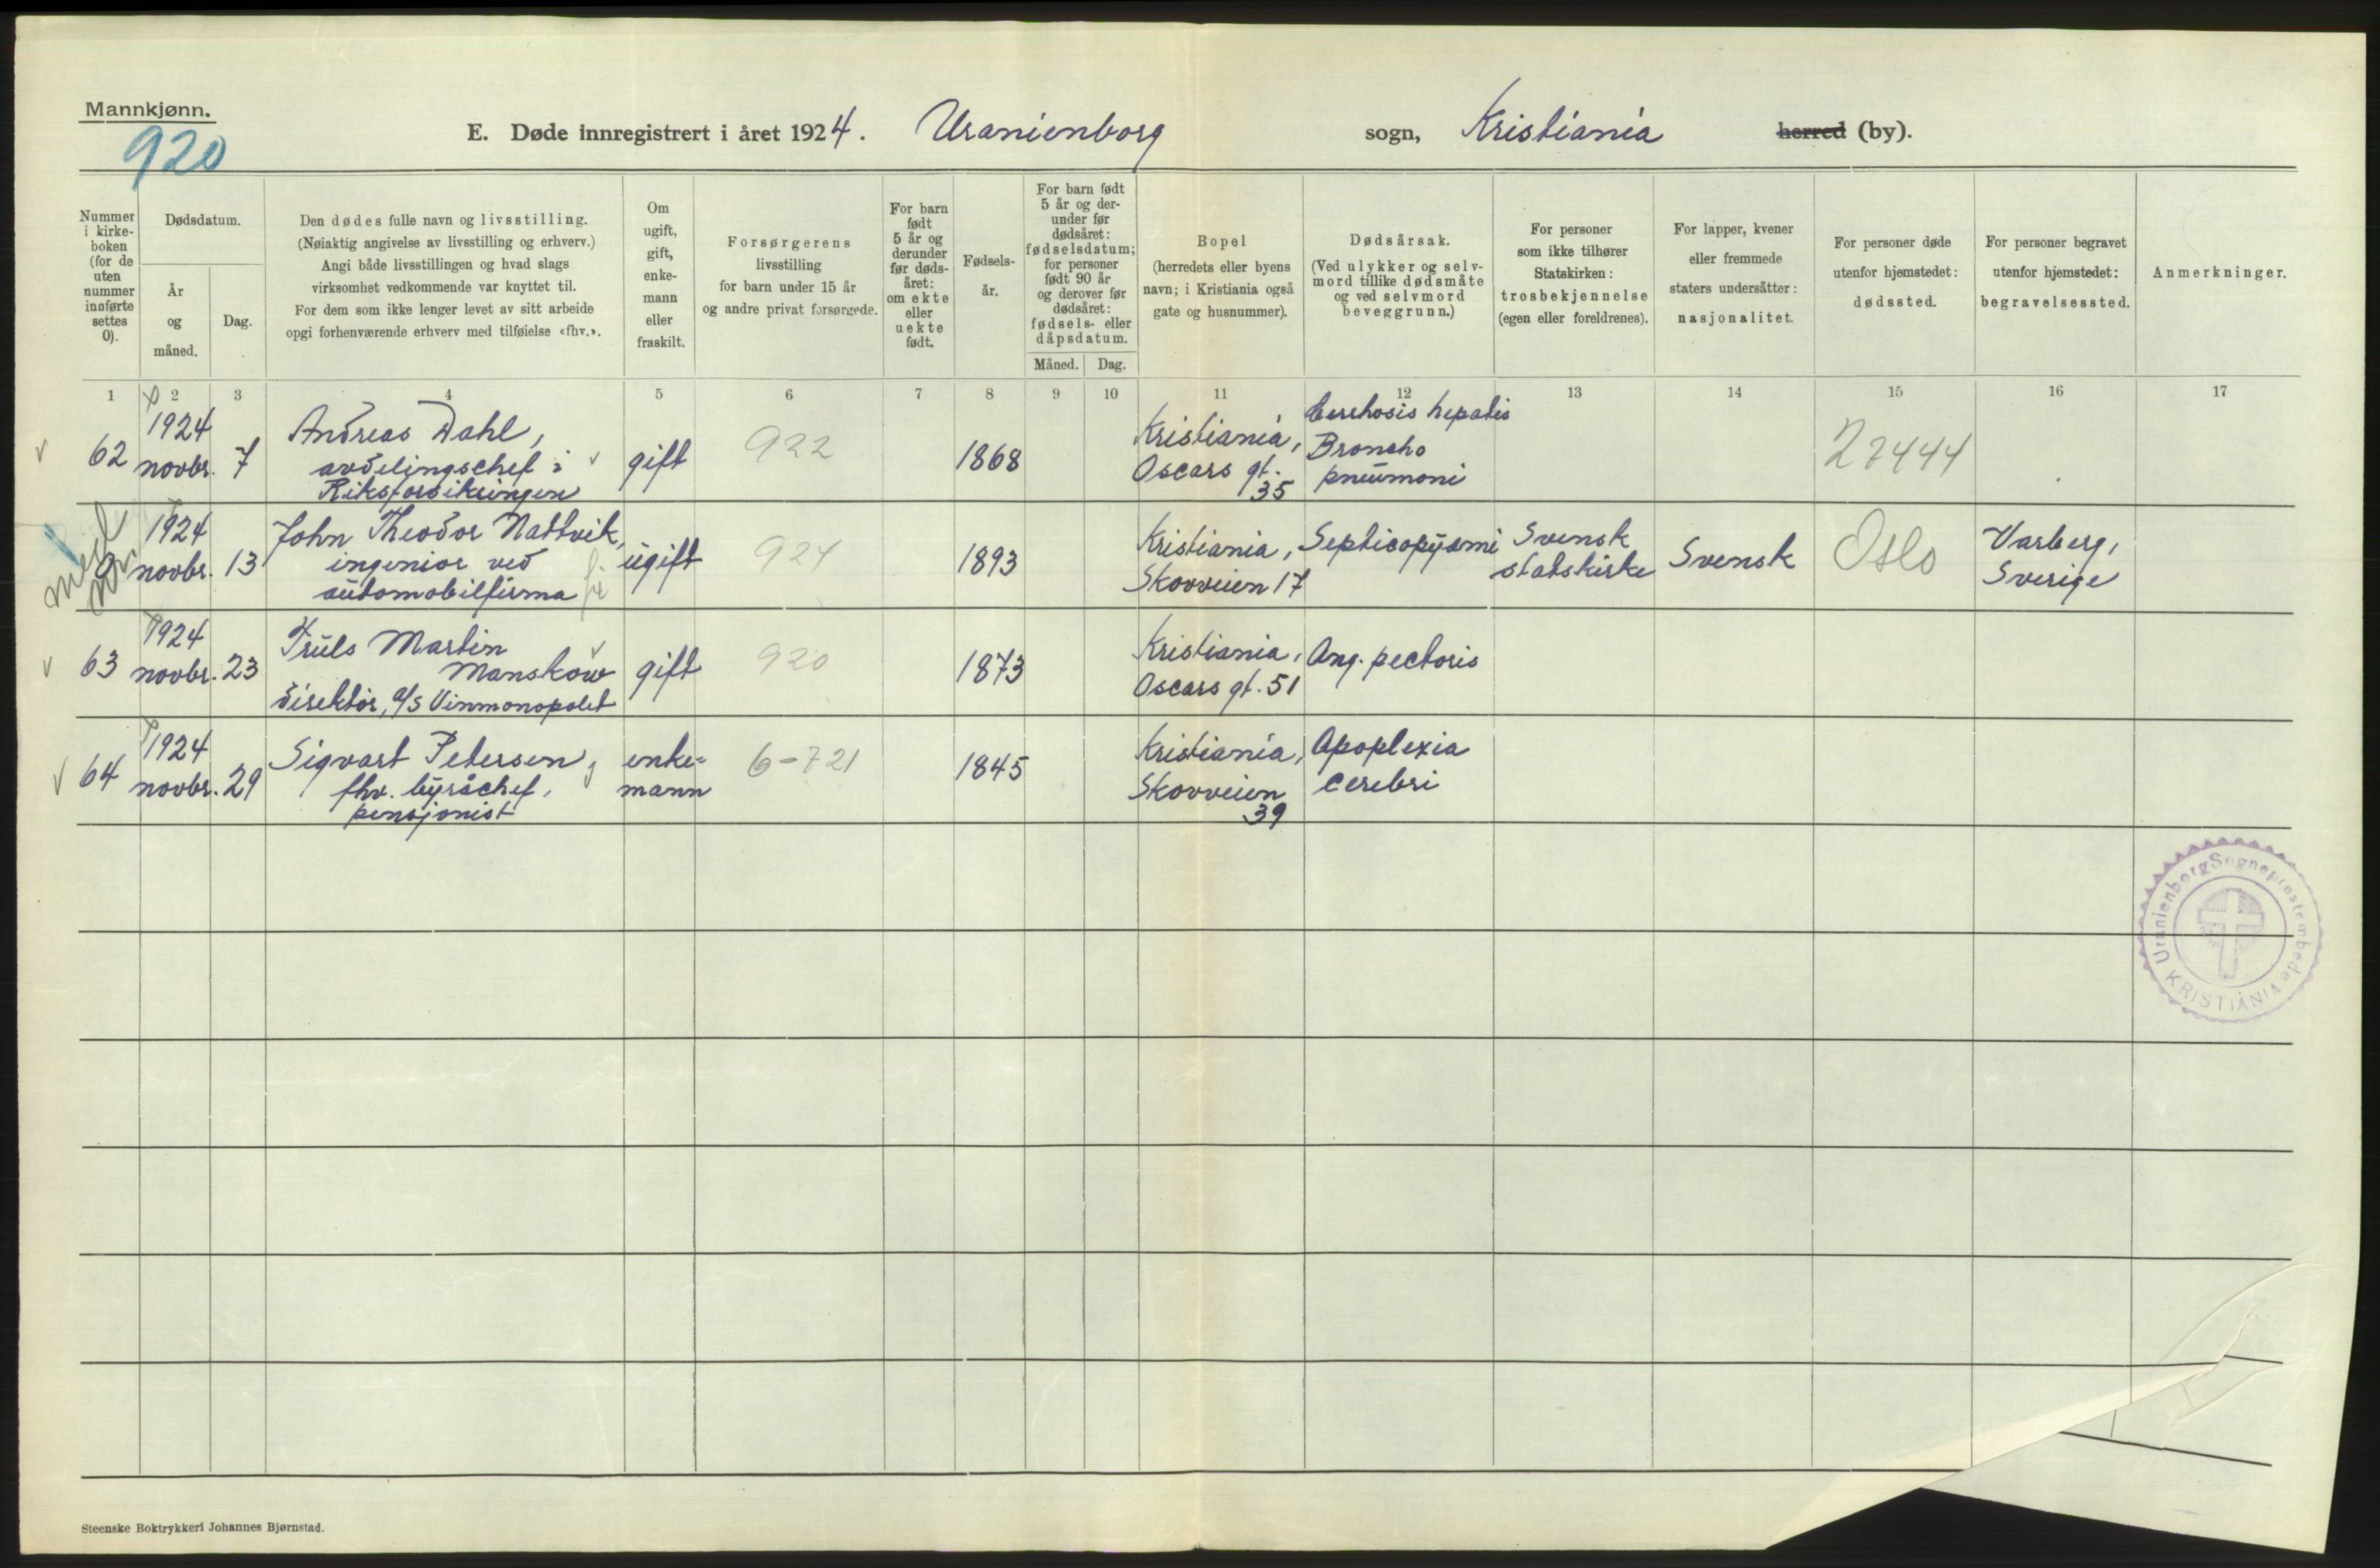 Mannkjønn.
920
E. Døde innregistrert i året 1924. Uranienborg sogn, Kristiania herred (by).
Nummer
i kirke-
boken
(for de
uten
nummer
innførte
settes
0).
Dødsdatum.
År
og
måned.
Dag.
Den dødes fulle navn og livsstilling.
(Nøiaktig angivelse av livsstilling og erhverv.)
Angi både livsstillingen og hvad slags
virksomhet vedkommende var knyttet til.
For dem som ikke lenger levet av sitt arbeide
opgi forhenværende erhverv med tilføielse «fhv.».
Om
ugift,
gift,
enke-
mann
eller
fraskilt.
Forsørgerens
livsstilling
for barn under 15 år
og andre privat forsørgede.
For barn
født
5 år og
derunder
før døds-
året:
om ekte
eller
uekte
født.
Fødsels-
år.
For barn født
5 år og der-
under før
dødsåret:
fødselsdatum;
for personer
født 90 år
og derover før
dødsåret:
fødsels- eller
dåpsdatum.
Måned. Dag.
Bopel
(herredets eller byens
navn; i Kristiania også
gate og husnummer).
Dødsårsak.
(Ved ulykker og selv-
mord tillike dødsmåte
og ved selvmord
beveggrunn.)
For personer
som ikke tilhører
Statskirken:
trosbekjennelse
(egen eller foreldrenes).
For lapper, kvener
eller fremmede
staters undersåtter:
nasjonalitet.
For personer døde
utenfor hjemstedet:
dødssted.
For personer begravet
utenfor hjemstedet:
begravelsessted.
Anmerkninger.
1 2 3 4 5 6 7 8 9 10 11 12 13 14 15 16 17
62
1924
novbr. 7
Andreas Dahl,
avdelingschef i
Riksforsikringen
gift
922
1868
Kristiania,
Oscars gt.
35
Cirrhosis hepatis
Broncho
pneumoni
27444
0
1924
novbr. 13
John Theodor Nattvik,
ingeniør ved
automobilfirma
ugift
924
1893
Kristiania,
Skovveien 17
Septicopyæmi
Svensk
statskirke
Svensk
Oslo
Varberg,
Sverige
63
1924
novbr. 23
Truls Martin
Manskow
direktør, A/S Vinmonopolet
gift
920
1873
Kristiania,
Oscars gt. 51
Ang. pectoris
64
1924
novbr. 29
Sigvart Petersen,
fhv. byråchef,
pensjonist
enke=
mann
6-721
1845
Kristiania,
Skovveien
39
Apoplexia
cerebri
Uranienborg Sogneprestembede
KRISTIANIA
Steenske Boktrykkeri Johannes Bjørnstad.